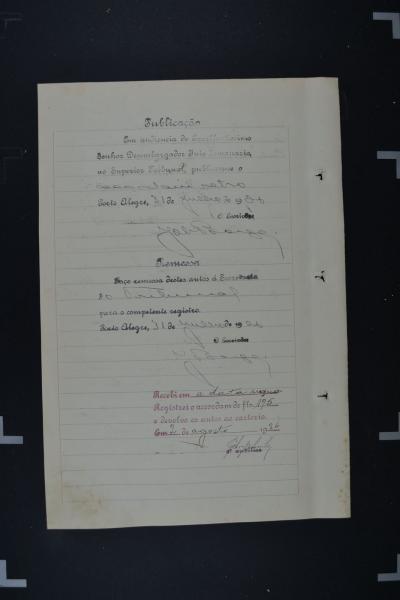 Publicação
Em audiencia do Excellentissimo
Senhor Desembargador Juiz Semanario
no Superior Tribunal, publicou-se o
accordam retro
Porto Alegre, 31 de Julho de 19
O Escrivão
Remessa
Faço remessa destes autos á Secretaria
do Tribunal
para o competente registro.
Porto Alegre, 31 de Julho de 19
O Escrivão
Recebi em a data supra
Registrei o accordam de fls. 195
e devolvo os autos ao cartorio.
Em de agosto 19